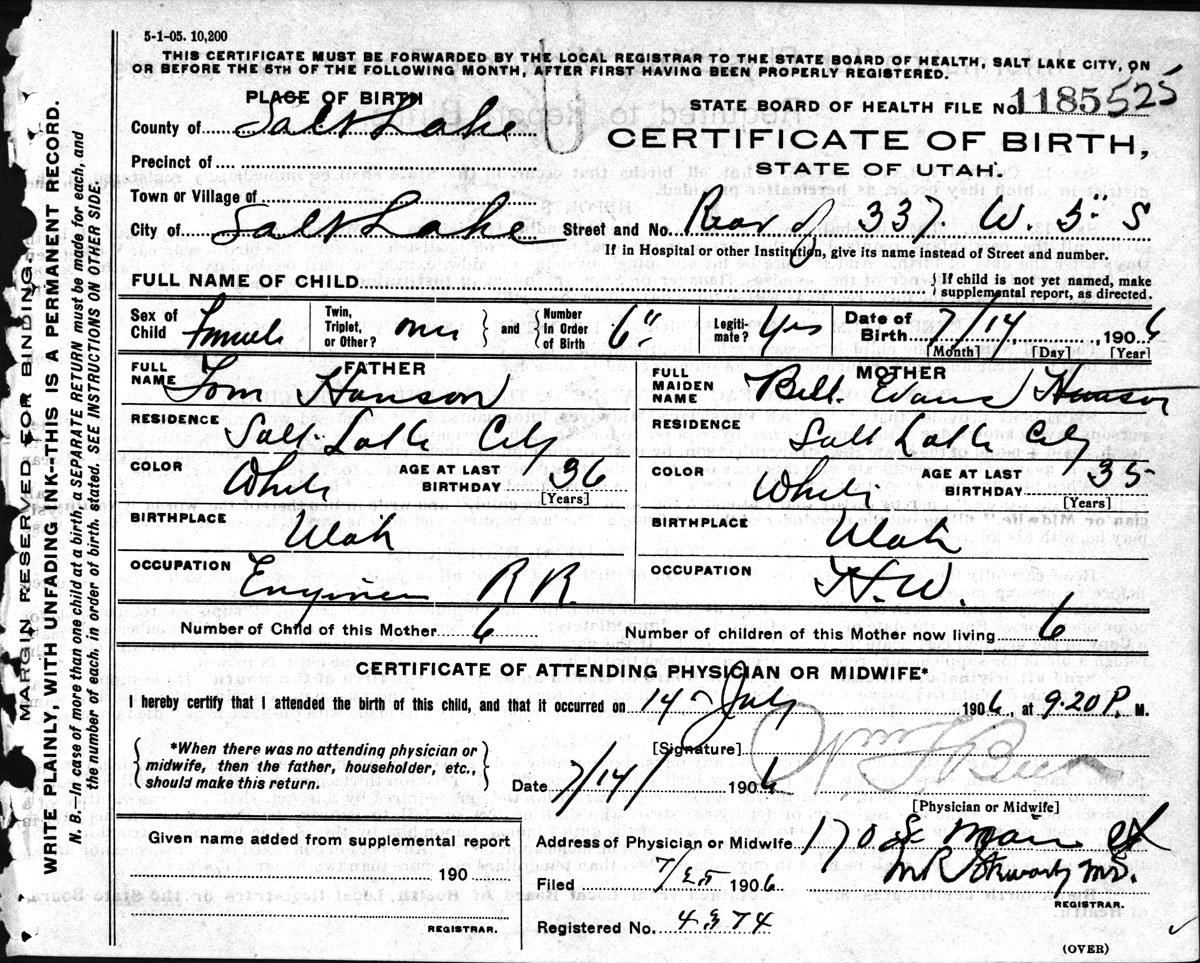 5-1-05. 10,200
THIS CERTIFICATE MUST BE FORWARDED BY THE LOCAL REGISTRAR TO THE STATE BOARD OF HEALTH, SALT LAKE CITY, ON
OR BEFORE THE 5TH OF THE FOLLOWING MONTH, AFTER FIRST HAVING BEEN PROPERLY REGISTERED.
PLACE OF BIRTH
STATE BOARD OF HEALTH FILE No. 1185525
County of Salt Lake
CERTIFICATE OF BIRTH,
Precinct of
STATE OF UTAH.
Town or Village of
City of Salt Lake Street and No. Rear of 337. W. 5" S
If in Hospital or other Institution, give its name instead of Street and number.
FULL NAME OF CHILD { If child is not yet named, make supplemental report, as directed.
Sex of Child Female Twin, Triplet, or Other? one } and { Number In Order of Birth 6" Legitimate? Yes Date of Birth 7/14, 1906
[Month] [Day] [Year]
FATHER
FULL NAME Tom Hanson
MOTHER
FULL MAIDEN NAME Bell. Evans Hanson
RESIDENCE Salt-Lake City
RESIDENCE Salt Lake City
COLOR White AGE AT LAST BIRTHDAY 36 [Years]
COLOR White AGE AT LAST BIRTHDAY 35 [Years]
BIRTHPLACE Utah
BIRTHPLACE Utah
OCCUPATION Engineer R R.
OCCUPATION H.W.
Number of Child of this Mother 6 Number of children of this Mother now living 6
CERTIFICATE OF ATTENDING PHYSICIAN OR MIDWIFE*
I hereby certify that I attended the birth of this child, and that it occurred on 14 - July 1906, at 9.20 P. M.
{ *When there was no attending physician or
midwife, then the father, householder, etc.,
should make this return. }
[Signature]
Date 7/14/ 1906
[Physician or Midwife]
Given name added from supplemental report
190
REGISTRAR.
Address of Physician or Midwife 170 So Main St
Filed 7/25 1906 M.D.
REGISTRAR.
Registered No. 4374
(OVER)
MARGIN RESERVED FOR BINDING.
WRITE PLAINLY, WITH UNFADING INK--THIS IS A PERMANENT RECORD.
N. B.--In case of more than one child at a birth, a SEPARATE RETURN must be made for each, and
the number of each, in order of birth, stated. SEE INSTRUCTIONS ON OTHER SIDE.